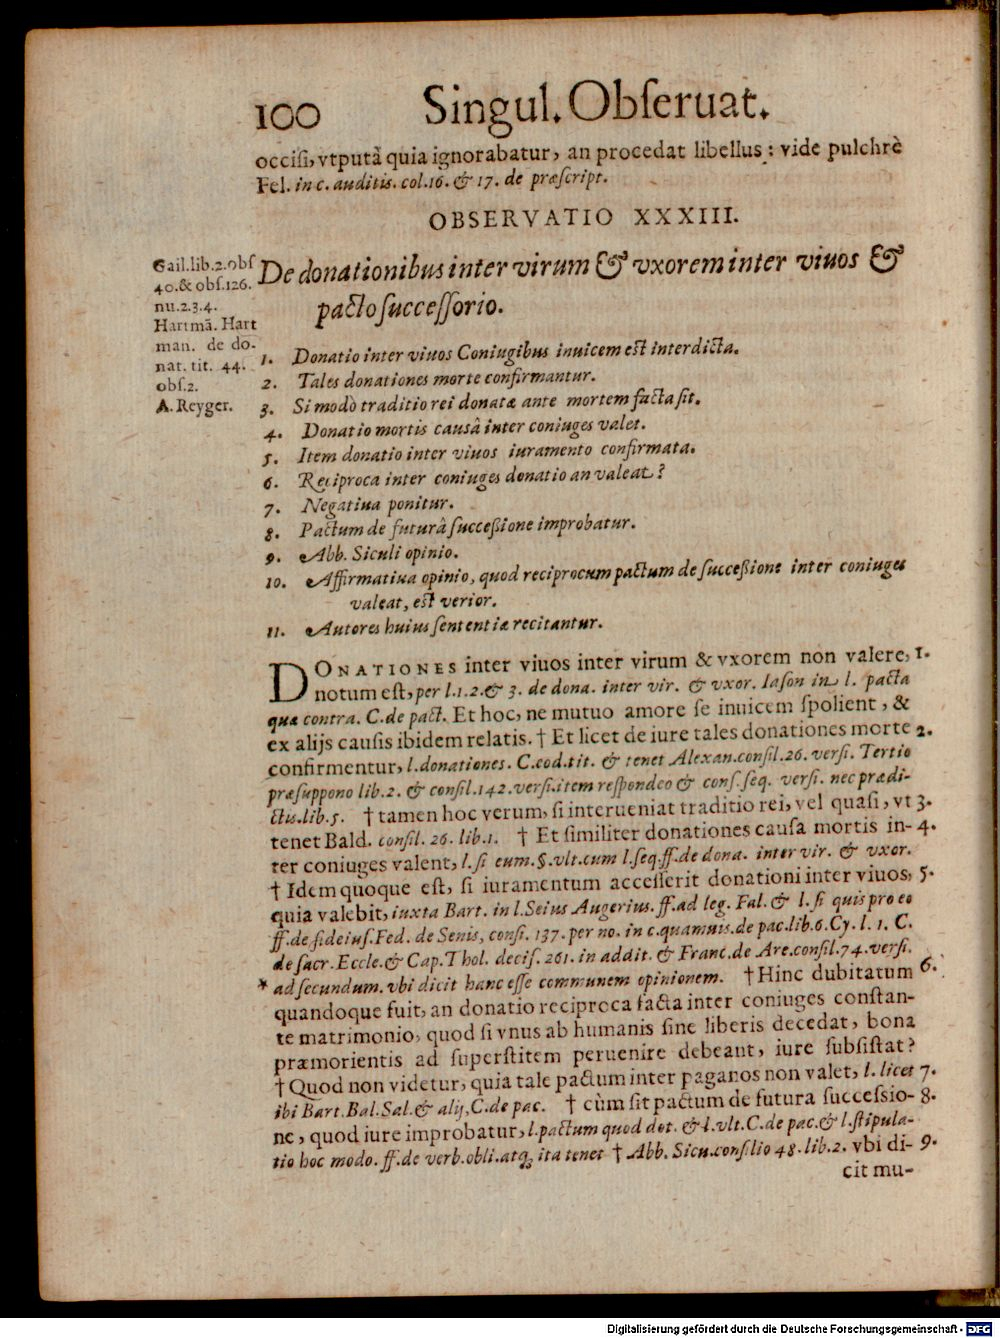 100 Singul. Obſeruat.
occiſi, vtputà quia ignorabatur, an procedat libellus: vide pulchrè
Fel. in c. auditis. col. 16. & 17. de præſcript.
OBSERVATIO XXXIII.
Gail. lib. 2. obſ
40. & obſ. 126.
nu. 2. 3. 4.
Hartmã. Hart
man. de do-
nat. tit. 44.
obſ. 2.
A. Reyger.
De donationibus inter virum & vxorem inter viuos &
pacto ſucceſſorio.
1. Donatio inter viuos Coniugibus inuicem est interdicta.
2. Tales donationes morte confirmantur.
3. Si modò traditio rei donatæ ante mortem facta ſit.
4. Donatio mortis causâ inter coniuges valet.
5. Item donatio inter viuos iuramento confirmata.
6. Reciproca inter coniuges donatio an valeat?
7. Negatiua ponitur.
8. Pactum de futurâ ſucceßione improbatur.
9. Abb. Siculi opinio.
10. Affirmatiua opinio, quod reciprocum pactum de ſucceßione inter coniuges
valeat, est verior.
11. Autores huius ſententiæ recitantur.
DONATIONES inter viuos inter virum & vxorem non valere, 1.
notum eſt, per l. 1. 2. & 3. de dona. inter vir. & vxor. Iaſon in l. pacta
quæ contra. C. de pact. Et hoc, ne mutuo amore ſe inuicem ſpolient, &
ex alijs cauſis ibidem relatis. † Et licet de iure tales donationes morte 2.
confirmentur, l. donationes. C. eod. tit. & tenet Alexan. conſil. 26. verſi. Tertio
præſuppono lib. 2. & conſil. 142. verſi. item reſpondeo & conſ. ſeq. verſi. nec prædi-
ctis. lib. 5. † tamen hoc verum, ſi interueniat traditio rei, vel quaſi, vt 3.
tenet Bald. conſil. 26. lib. 1. † Et ſimiliter donationes cauſa mortis in- 4.
ter coniuges valent, l. ſi eum. §. vlt. cum l. ſeq. ff. de dona. inter vir. & vxor.
† Idem quoque eſt, ſi iuramentum acceſſerit donationi inter viuos, 5.
quia valebit, iuxta Bart. in l. Seius Augerius. ff. ad leg. Fal. & l. ſi quis pro eo
ff. de fideiuſ. Fed. de Senis, conſi. 137. per no. in c. quamuis. de pac. lib. 6. Cy. l. 1. C.
de ſacr. Eccle. & Cap. Thol. deciſ. 261. in addit. & Franc. de Are. conſil. 74. verſi.
* ad ſecundum. vbi dicit hanc eſſe communem opinionem. † Hinc dubitatum 6.
quandoque fuit, an donatio reciproca facta inter coniuges conſtan-
te matrimonio, quod ſi vnus ab humanis ſine liberis decedat, bona
præmorientis ad ſuperſtitem peruenire debeant, iure ſubſiſtat?
† Quod non videtur, quia tale pactum inter paganos non valet, l. licet 7.
ibi Bart. Bal. Sal. & alij, C. de pac. † cùm ſit pactum de futura ſucceſsio- 8.
ne, quod iure improbatur, l. pactum quod dot. & l. vlt. C. de pac. & l. ſtipula-
tio hoc modo. ff. de verb. obli. atq; ita tenet † Abb. Sicu. conſilio 48. lib. 2. vbi di- 9.
cit mu-
Digitalisierung gefördert durch die Deutsche Forschungsgemeinschaft - DFG